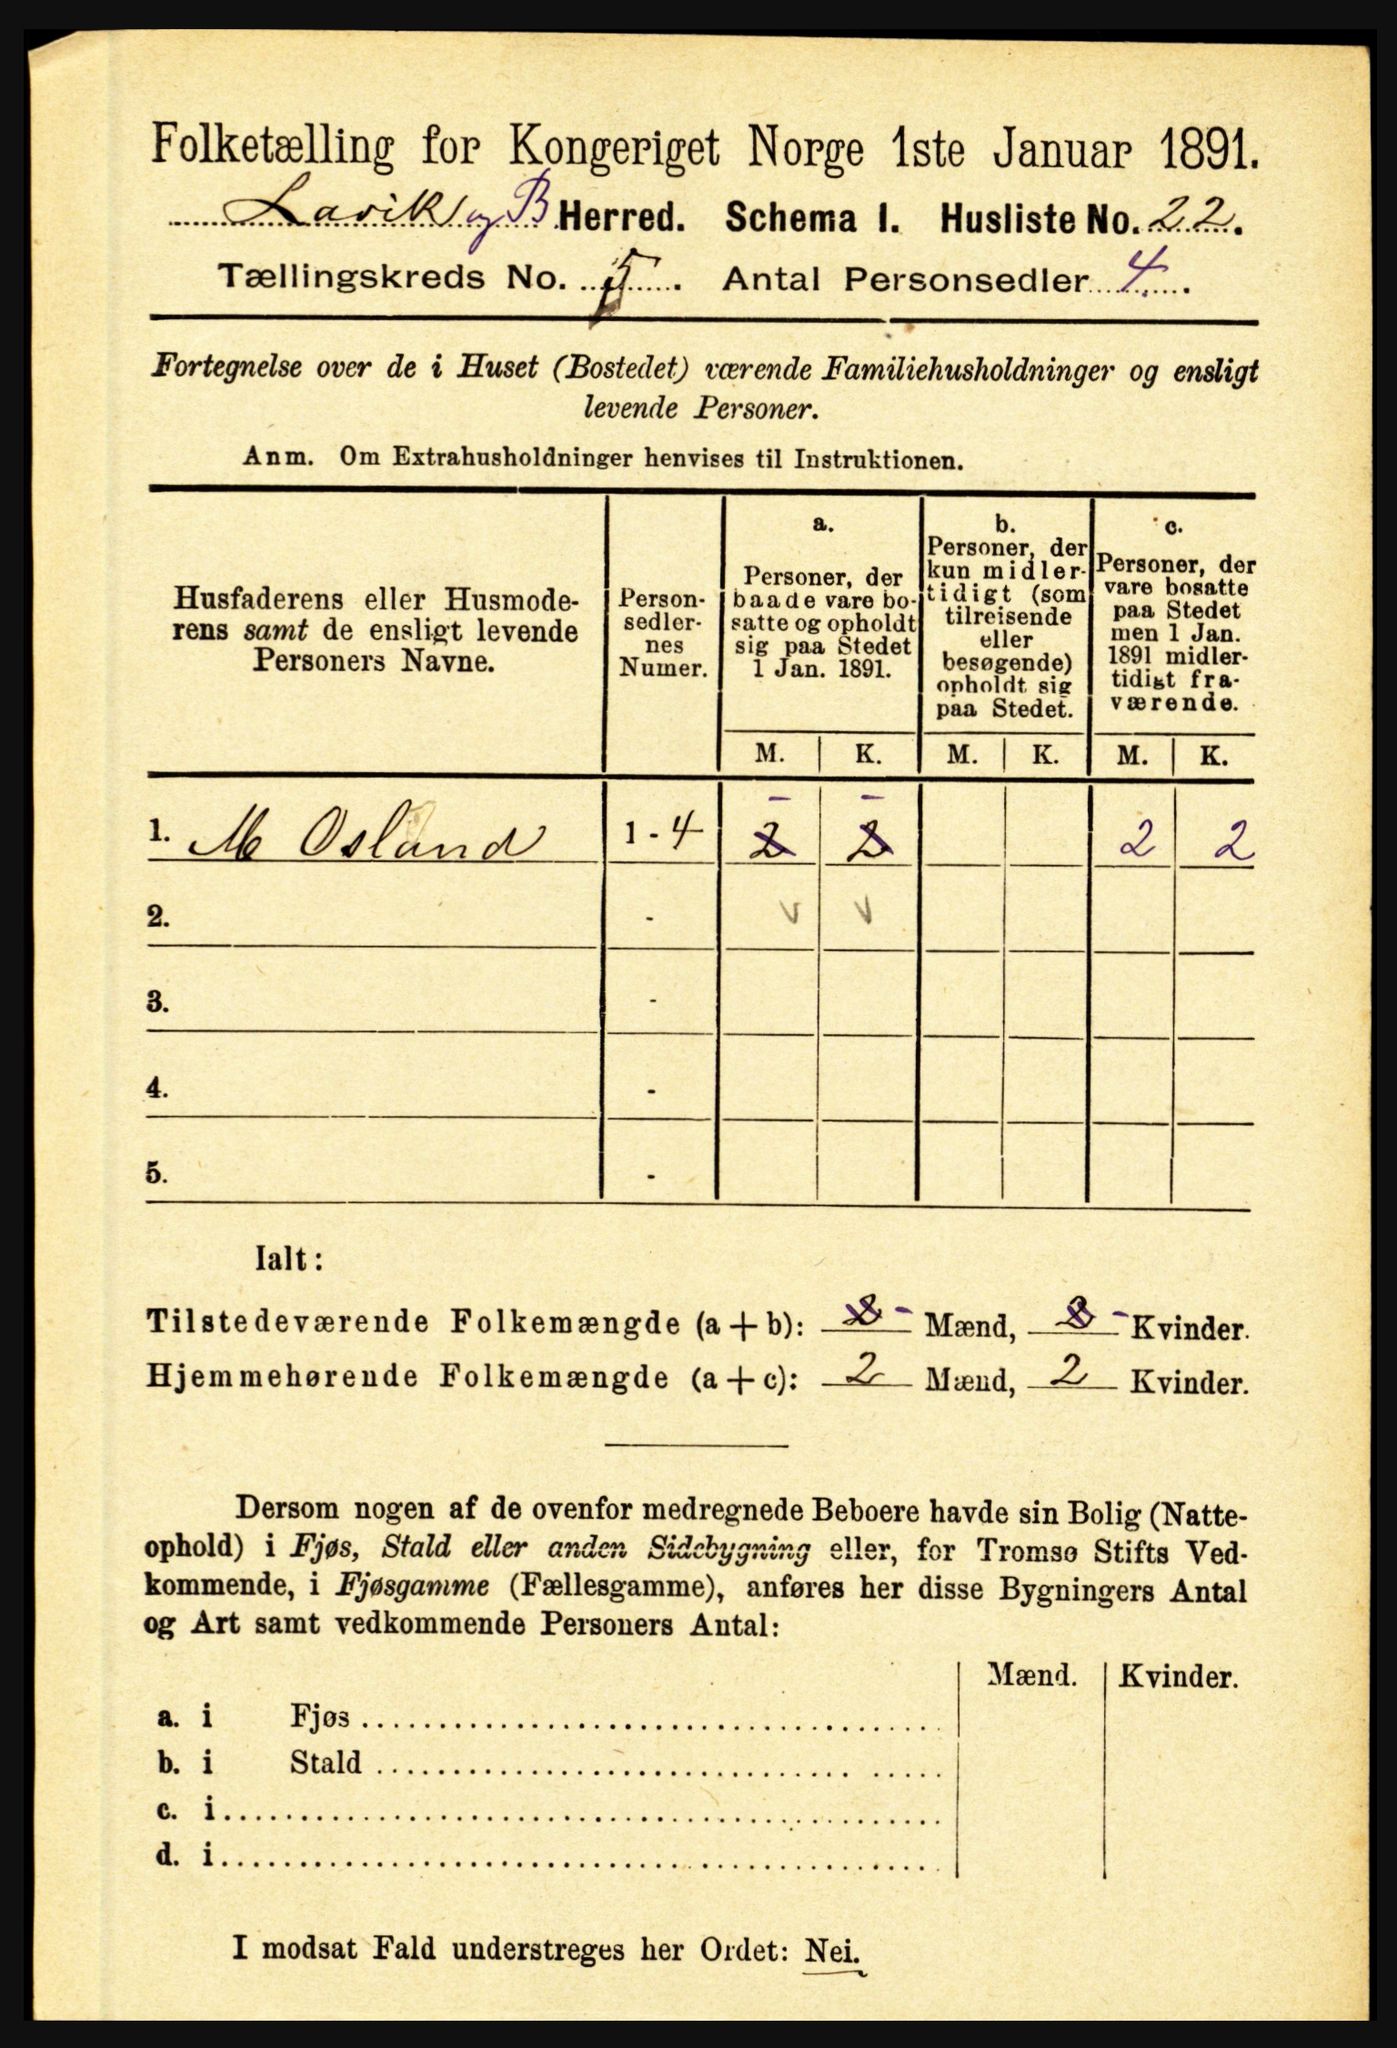 Folketælling for Kongeriget Norge 1ste Januar 1891.
Lavik og B Herred. Schema I. Husliste No. 22.
Tællingskreds No. 5. Antal Personsedler 4.
Fortegnelse over de i Huset (Bostedet) værende Familiehusholdninger og ensligt
levende Personer.
Anm. Om Extrahusholdninger henvises til Instruktionen.
Husfaderens eller Husmode-
rens samt de ensligt levende
Personers Navne.
Person-
sedler-
nes
Numer.
a.
Personer, der
baade vare bo-
satte og opholdt
sig paa Stedet
1 Jan. 1891.
b.
Personer, der
kun midler-
tidigt (som
tilreisende
eller
besøgende)
opholdt sig
paa Stedet.
c.
Personer, der
vare bosatte
paa Stedet
men 1 Jan.
1891 midler-
tidigt fra-
værende.
M. K. M. K. M. K.
- -
1. M Osland 1 - 4 2 2 2 2
2. - v v
3. -
4. -
5. -
Ialt:
Tilstedeværende Folkemængde (a + b): 2 - Mænd, 2 - Kvinder.
Hjemmehørende Folkemængde (a + c): 2 Mænd, 2 Kvinder.
Dersom nogen af de ovenfor medregnede Beboere havde sin Bolig (Natte-
ophold) i Fjøs, Stald eller anden Sidebygning eller, for Tromsø Stifts Ved-
kommende, i Fjøsgamme (Fællesgamme), anføres her disse Bygningers Antal
og Art samt vedkommende Personers Antal:
Mænd. Kvinder.
a. i Fjøs
b. i Stald
c. i
d. i
I modsat Fald understreges her Ordet: Nei.